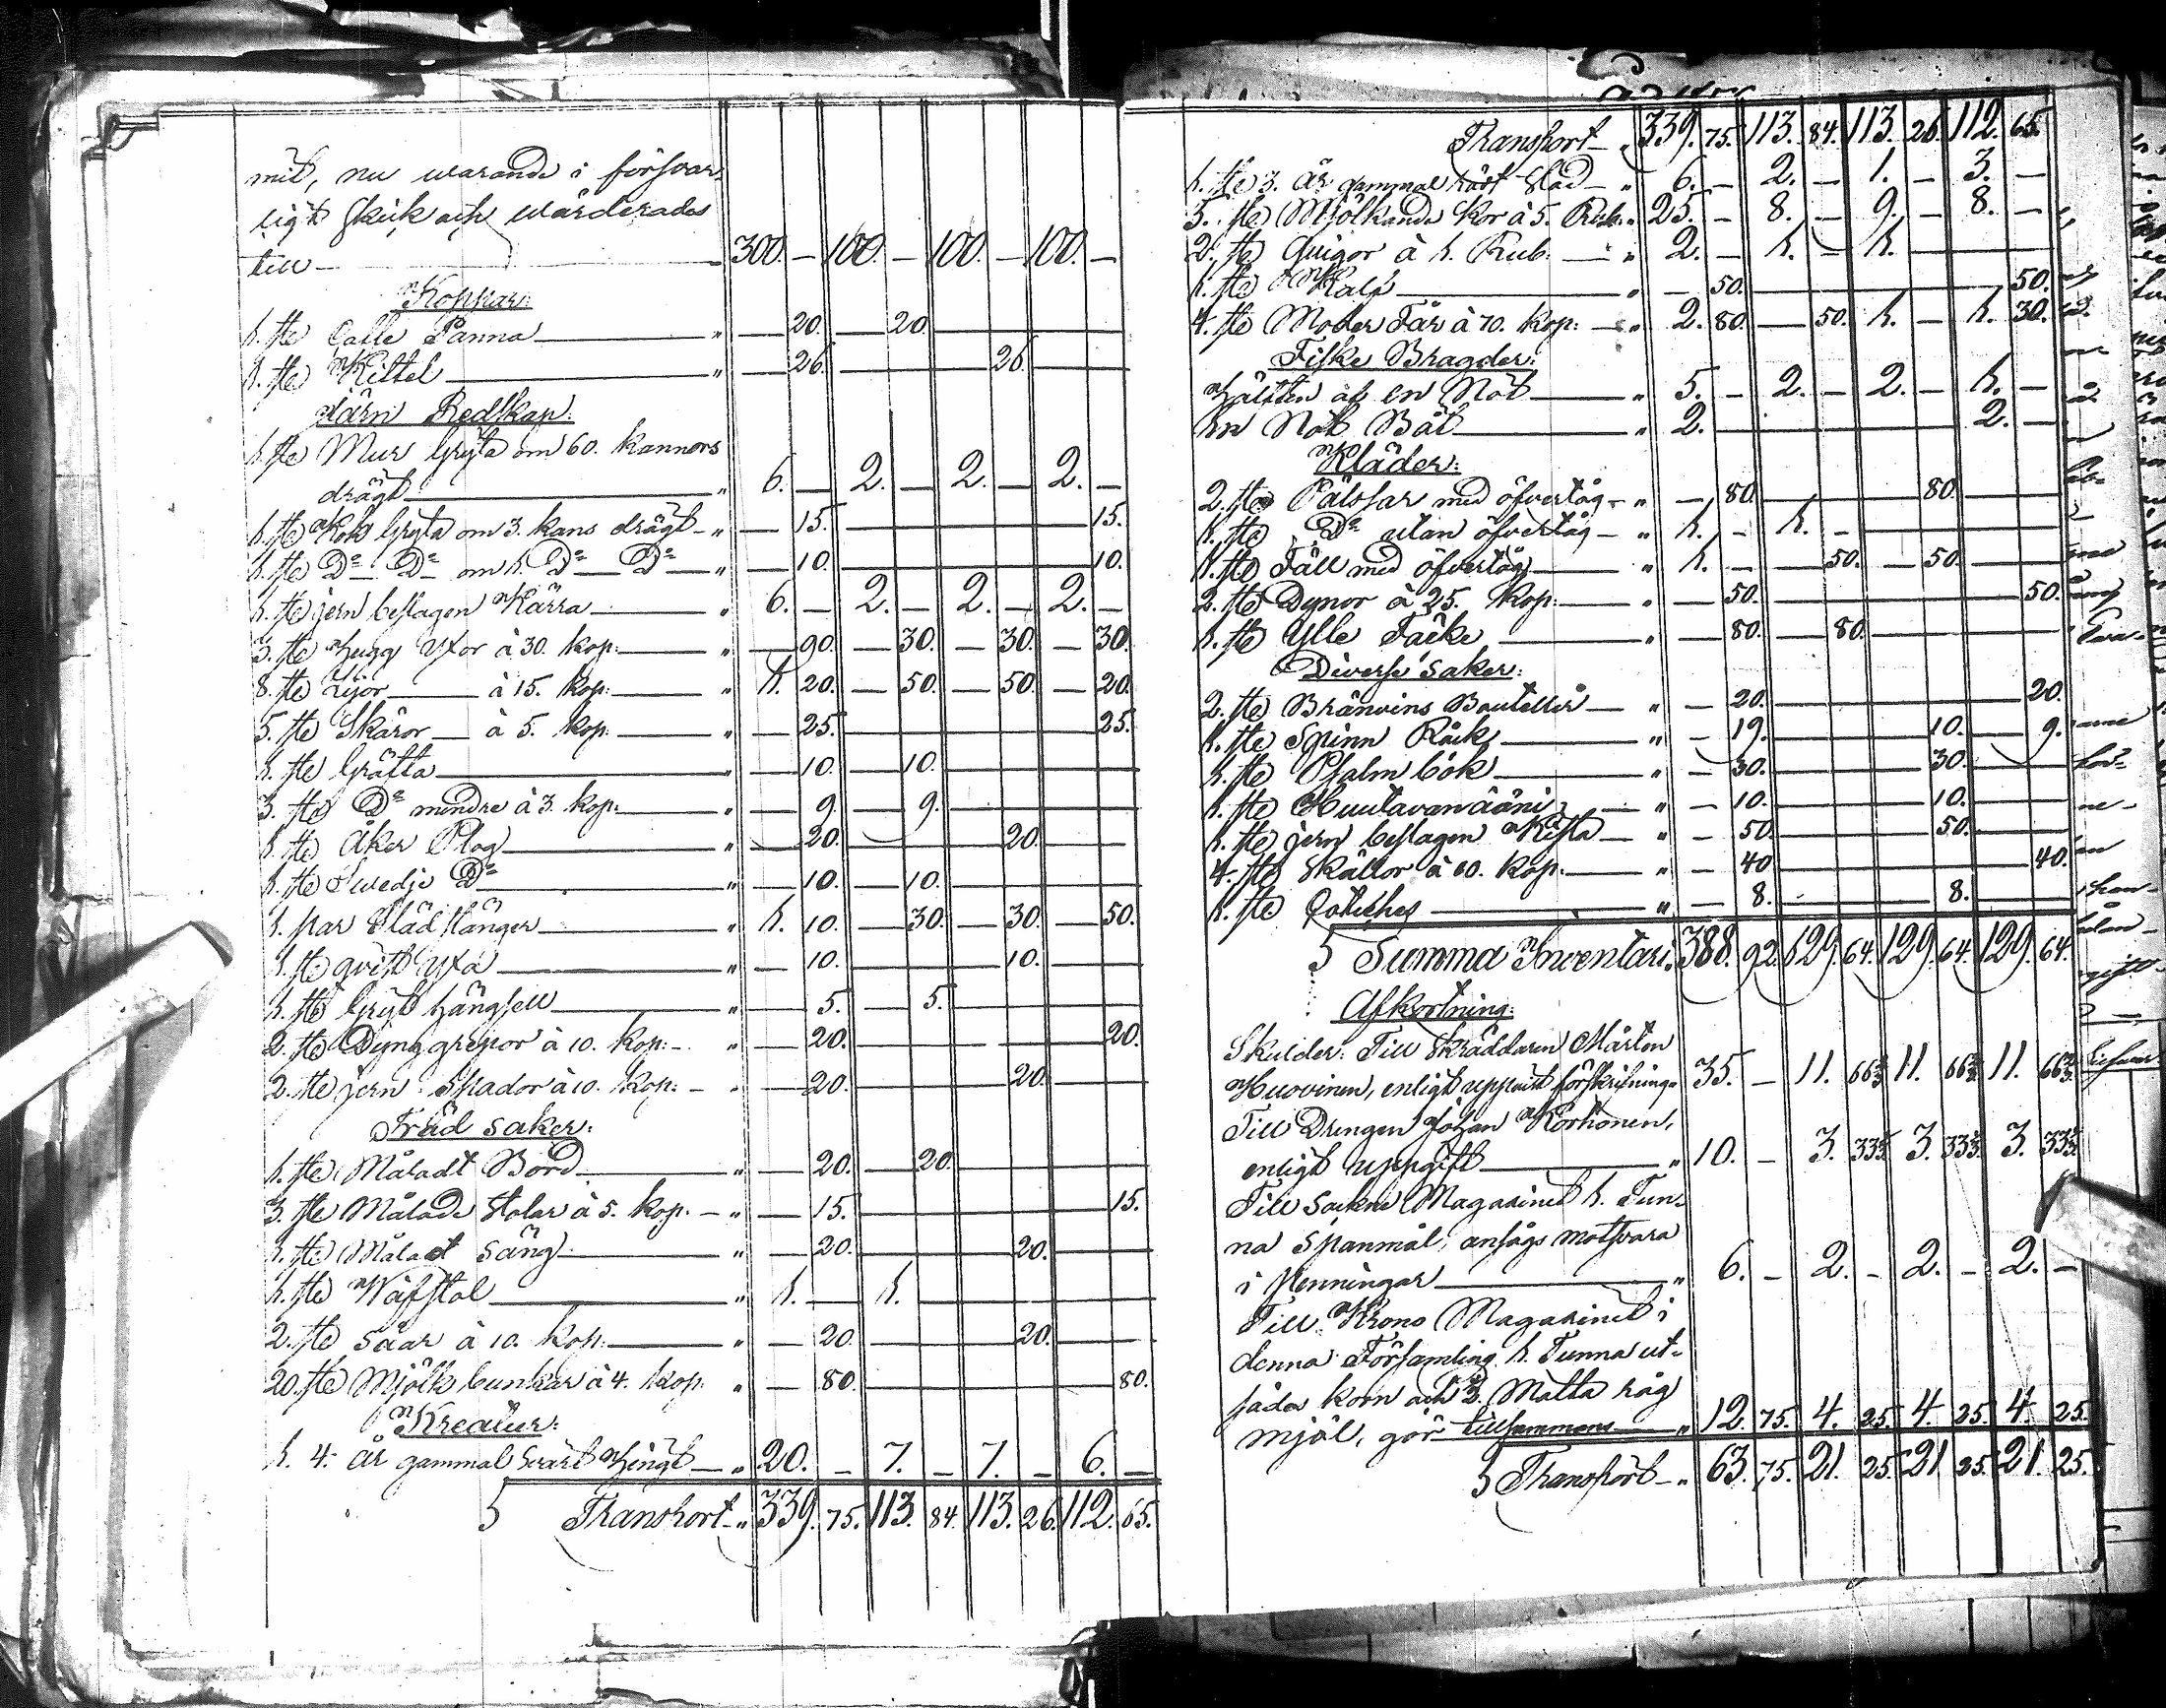 mit, nu warande i försvar-
ligt skick och wärderades
till — 300. — 100. — 100. — 100. —
Koppar:
1. ste Caffe Panna — " — 20. — 20.
1. ste Kittel — " — 26. — 26.
Järn Redskap:
1. ste Mur Gryta om 60. kannors
drägt — " 6. — 2. — 2. — 2. —
1. ste Kok Gryta om 3. kans drägt — " — 15. — 15.
1. ste Do Do om 1. Do Do — " — 10. — 10.
1. ste jern beslagen Kärra — " 6. — 2. — 2. — 2. —
3. ste Hugg Yxor à 30. kop: — " — 90. — 30. — 30. — 30.
8. ste Lijor — à 15. kop: — " 1. 20. — 50. — 50. — 20.
5. ste Skäror — à 5. kop: — " — 25. — 25.
1. ste Gräfta — " — 10. — 10.
3. ste Do mindre à 3. kop: — " — 9. — 9.
1. ste Åker Plog — " — 20. — 20.
1. ste Swedje Do — " — 10. — 10.
1. par Släd stänger — " 1. 10. — 30. — 30. — 50.
1. ste qvist Yxa — " — 10. — 10.
1. ste Gryt hängsell — " — 5. — 5.
2. ste Dyng grepor à 10. kop: — " — 20. — 20.
2. ste jern Spador à 10. kop: — " — 20. — 20.
Träd saker:
1. ste Måladt Bord — " — 20. — 20.
3. ste Målade Stolar à 5. kop. — " — 15. — 15.
1. ste Målad Säng — " — 20. — 20.
1. ste Wäfstol — " 1. — 1. —
2. ste Såar à 10. kop: — " — 20. — 20.
20. ste Mjölk bunkar à 4. kop: " — 80. — 80.
Kreatur:
1. 4. år gammal Svart Hingst — " 20. — 7. — 7. — 6. —
Transport — " 339. 75. 113. 84. 113. 26. 112. 65.
Transport — " 339. 75. 113. 84. 113. 26. 112. 65.
1. ste 3. år gammal Stod — " 6. — 2. — 1. — 3. —
5. ste Mjölkande Kor à 5. Rub. " 25. — 8. — 9. — 8. —
2. ste Quigor à 1. Rub. — " 2. — 1. — 1. —
1. ste Kalf — " — 50. — 50.
4. ste Moder Får à 70. kop: — " 2. 80. — 50. 1. — 1. 30.
Fiske Bragder:
Hälften af en Not — " 5. — 2. — 2. — 1. —
en Not Båt — " 2. — 2. —
Kläder:
2. ste Pälssar med öfvertåg — " — 80. — 80.
1. ste Do utan öfvertåg — " 1. — 1. —
1. ste Fäll med öfvertåg — " 1. — 50. — 50.
2. ste Dynor à 25. kop: — " — 50. — 50.
1. ste Ylle Täcke — " — 80. — 80.
Diverse saker:
2. ste Bränvins Boutellier — " — 20. — 20.
1. ste Spinn Råck — " — 19. — 10. — 9.
1. ste Psalm bok — " — 30. — 30.
1. ste Huutavan ääni — " — 10. — 10.
1. ste jern beslagen Kista — " — 50. — 50.
4. ste Skällor à 10. kop. — " — 40. — 40.
1. ste Catches — " — 8. — 8.
Summa Inventari. 388. 92. 129. 64. 129. 64. 129. 64.
Afkortning:
Skulder: Till Skräddaren Mårten
Huovinen, enligt uppvist förskrifning " 35. — 11. 66⅔. 11. 66⅔. 11. 66⅔.
Till Drengen Johan Korhonen,
enligt uppgift — " 10. — 3. 33⅓. 3. 33⅓. 3. 33⅓.
Till Sockne Magasinet 1. Tun-
na Spanmål, ansågs motsvara
i Penningar — " 6. — 2. — 2. — 2. —
Till Krono Magasinet i
denna Församling 1. Tunna ut-
säder korn och 3. Matta råg
mjöl, gör tillsammans — " 12. 75. 4. 25. 4. 25. 4. 25.
Transport — " 63. 75. 21. 25. 21. 25. 21. 25.